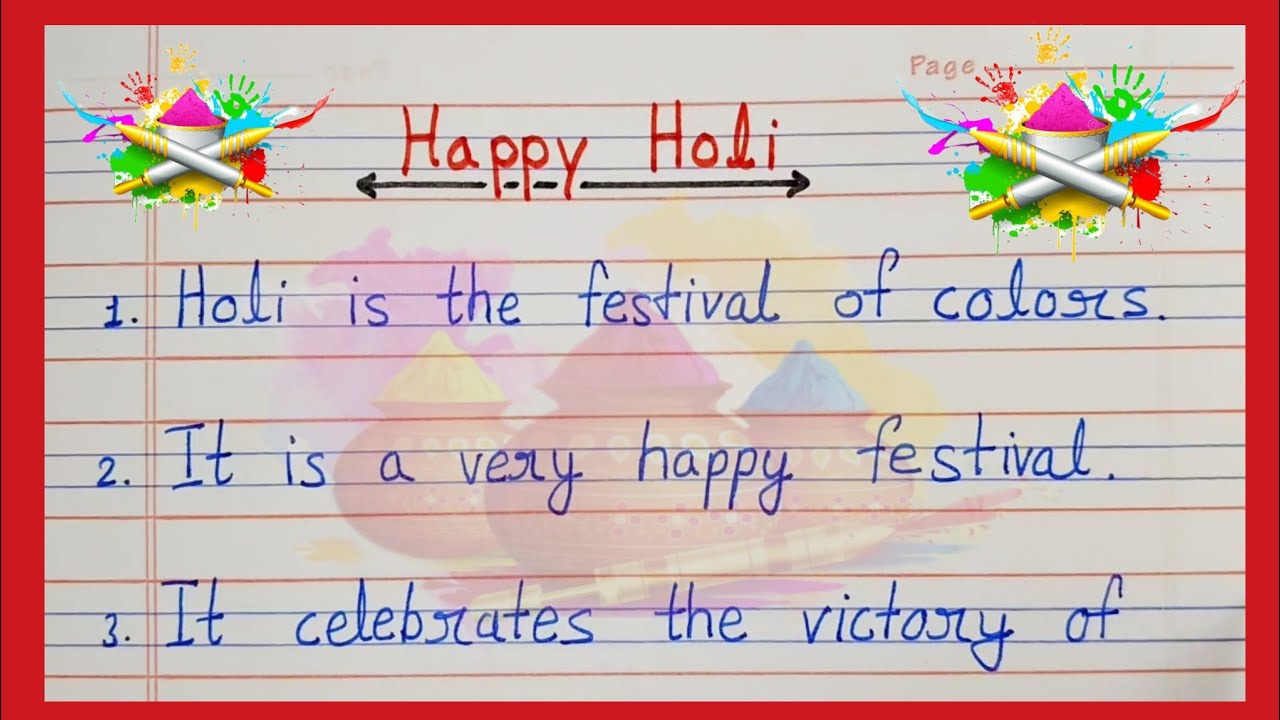 Page
Happy Holi
1. Holi is the festival of colors.
2. It is a very happy festival.
3. It celebrates the victory of